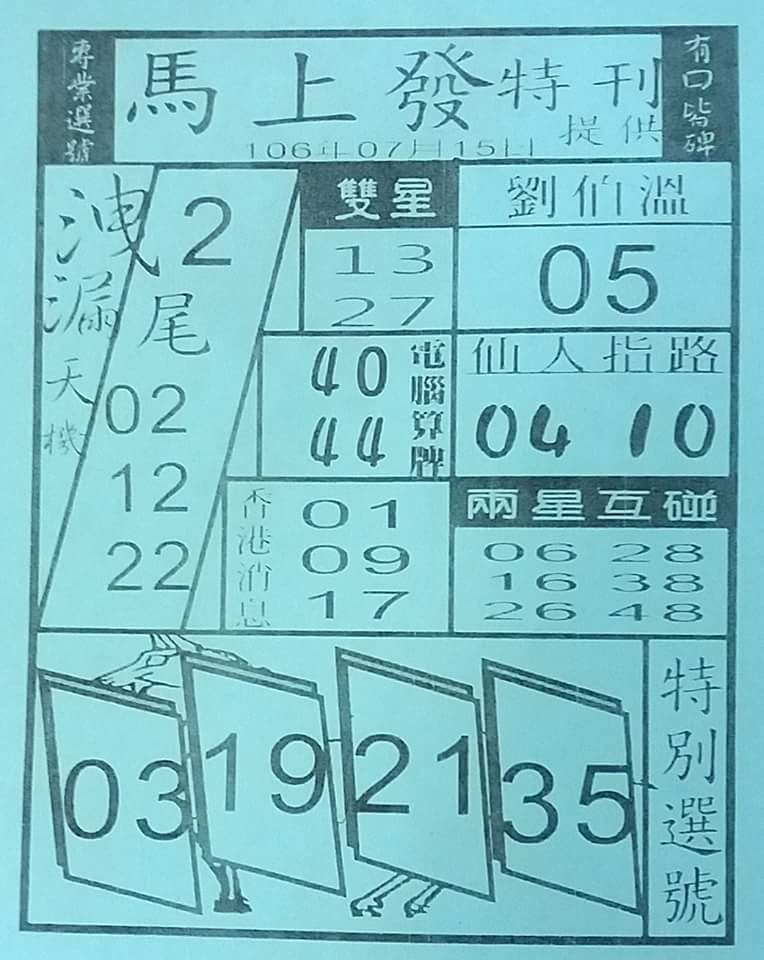 專業選號
馬上發特刊
提供
有口皆碑
106年07月15日
洩漏天機
2
尾
02
12
22
雙星
13
27
劉伯溫
05
電腦算牌
40
44
仙人指路
04 10
香港消息
01
09
17
兩星互碰
06 28
16 38
26 48
03 19 21 35
特別選號